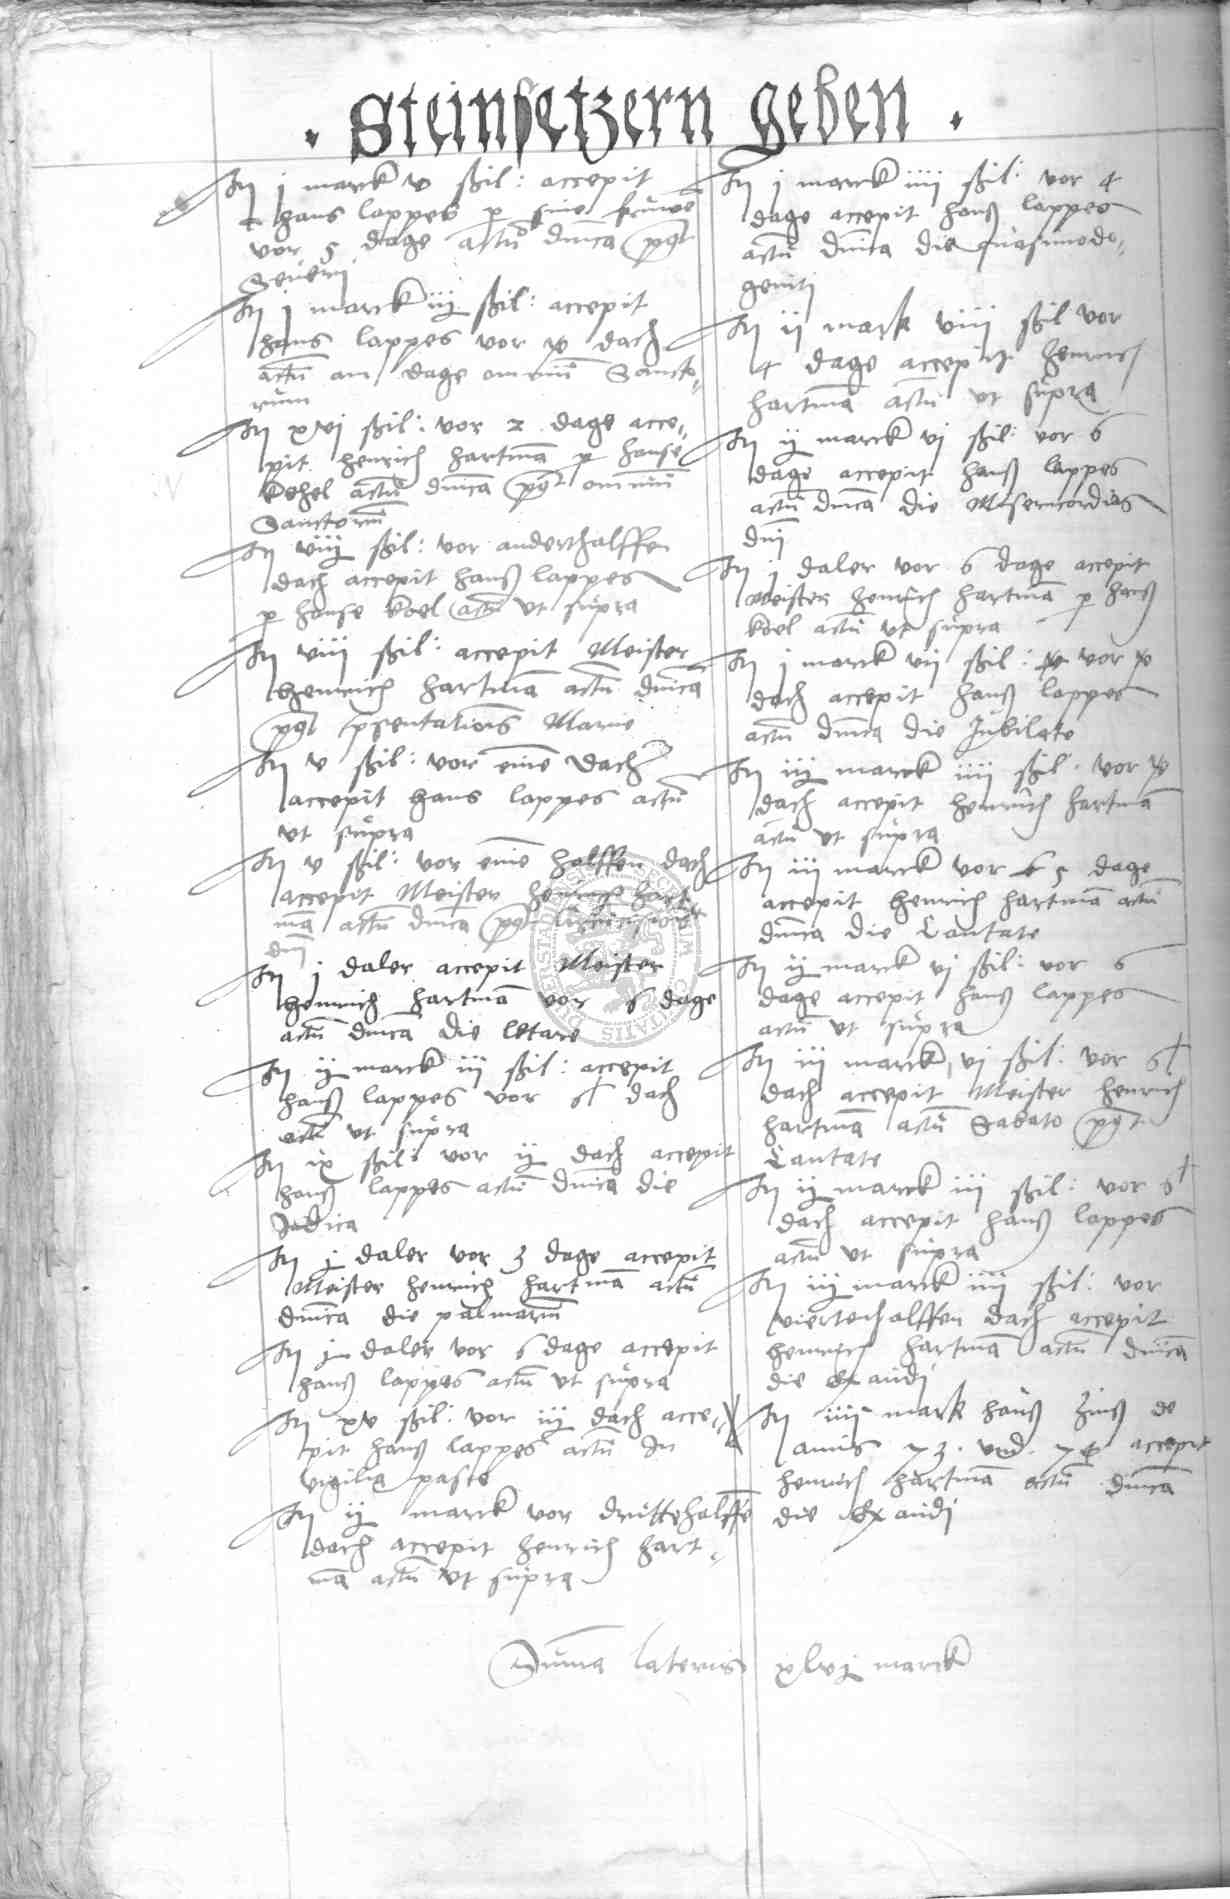 . Steinsetzern geben .
It j marck v ßil: accepit
hans lappes p sine
vor 5 dage actū dnica pꝰt
Severi
It j marck iij ßil: accepit
hans lappes vor dach
actū am dage omniū Sancto„
rum
It xvj ßil: vor 2 dage acce„
pit henrich hartmā p hanse
kohel actū dnica pꝰt omniū
Sanctorū
It viij ßil: vor anderthalffen
dach accepit hanß lappes
p hanse koel actū ut supra
It viij ßil: accepit Meister
henrich hartmā actū dnica
pꝰt psentationis Marie
It v ßil: vor eine dach
accepit hans lappes actū
ut supra
It v ßil: vor eine halffen dach
accepit Meister henrich hart
mā actū dnica pꝰt
dni
It j daler accepit Meister
henrich hartmā vor 6 dage
actū dnica die letare
It ij marck iij ßil: accepit
hanß lappes vor dach
actū ut supra
It ix ßil: vor ij dach accepit
hanß lappes actū dnica die
Judica
It j daler vor 3 dage accepit
Meister henrich hartmā actū
dnica die palmarū
It j daler vor 6 dage accepit
hanß lappes actū ut supra
It xv ßil: vor iij dach acce„
pit hanß lappes actū In
vigilia pasce
It ij marck vor drittehalffē
dach accepit henrich hart„
mā actū ut supra
It j marck iiij ßil: vor 4
dage accepit hanß lappes
actū dnica die quasimodo„
geniti
It ij mark viij ßil vor
4 dage accepit henrich
hartmā actū ut supra
It ij marck vj ßil: vor 6
dage accepit hanß lappes
actū dnica die Misericordias
dni
It j daler vor 6 dage accepit
Meister henrich hartmā p hanß
koel actū ut supra
It j marck vij ßil: vor
dach accepit hanß lappes
actū dnica die Jubilate
It iij marck iiij ßil: vor
dach accepit henrich hartmā
actū ut supra
It iij marck vor 5 dage
accepit henrich hartmā actū
dnica die Cantate
It ij marck vj ßil: vor 6
dage accepit hanß lappes
actū ut supra
It iij marck vj ßil: vor
dach accepit Meister henrich
hartmā actū Sabato pꝰt
Cantate
It ij marck iij ßil: vor
dach accepit hanß lappes
actū ut supra
It iij marck iiij ßil: vor
viertehalffen dach accepit
henrich hartmā actū dnica
die Exaudi
It iiij mark hauß Zinß de
annis 73. und. 74 accepit
henrich hartmā actū dnica
die Exaudi
Suma lateris xlvj marck